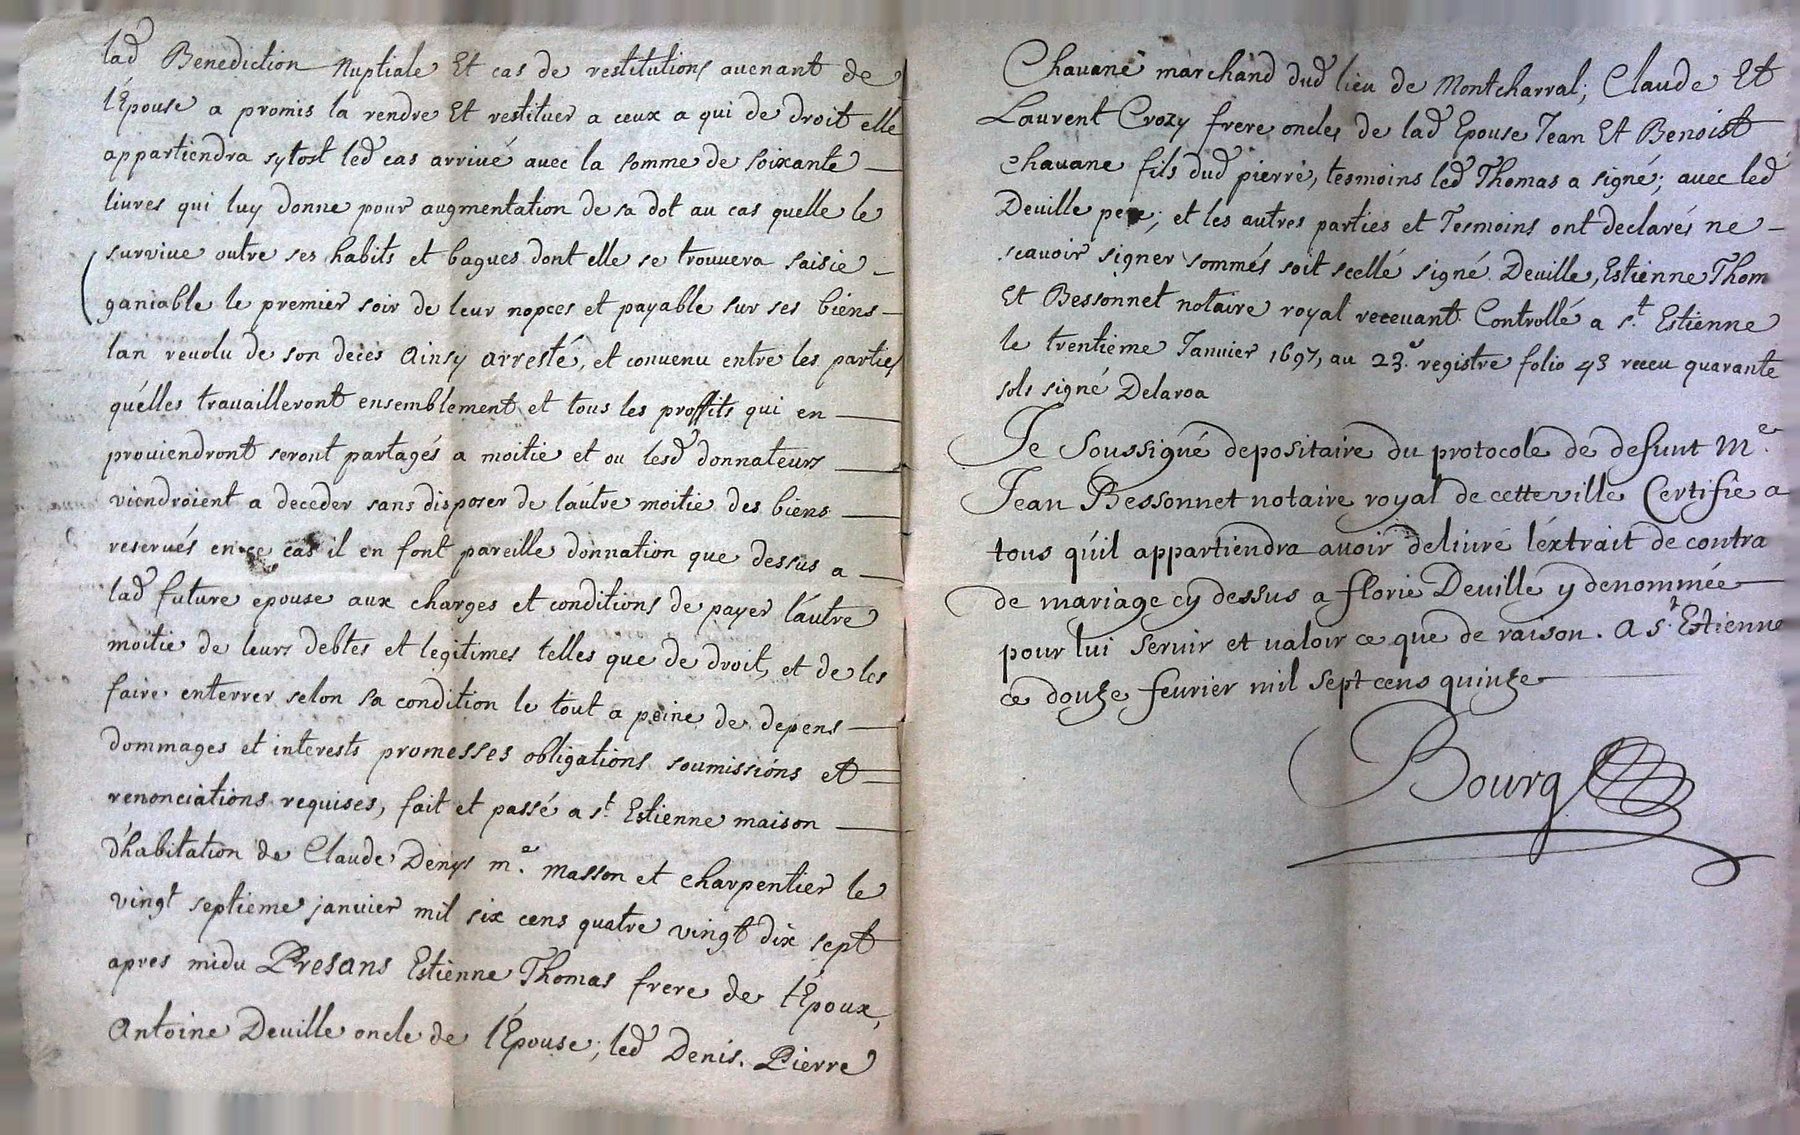 lad Benediction Nuptiale Et cas de restitutions auenant de
l'Epouse a promis la rendre Et restituer a ceux a qui de droit elle
appartiendra sytost led cas arriué auec la somme de soixante
liures qui luy donne pour augmentation de sa dot au cas quelle le
suruiue outre ses habits et bagues dont elle se trouuera saisie
ganiable le premier soir de leur nopces et payable sur ses biens
lan reuolu de son deces Ainsy arresté, et conuenu entre les parties
quélles trauailleront ensemblement et tous les proffits qui en
prouiendront seront partagés a moitie et ou lesd donnateurs
viendroient a deceder sans disposer de láutre moitie des biens
reserués en ce cas il en font pareille donnation que dessus a
lad future epouse aux charges et conditions de payer láutre
moitie de leurs debtes et legitimes telles que de droit, et de les
faire enterrer selon sa condition le tout a peine de depens
dommages et interests promesses obligations soumissions et
renonciations requises, fait et passé a st. Estienne maison
d'habitation de Claude Denys me. masson et charpentier le
vingt septieme januier mil six cens quatre vingt dix sept
apres midu Presans Estienne Thomas frere de l'Epoux,
Antoine Deuille oncle de l'Epouse; led Denis. Pierre
Chauane marchand dud lieu de Montcharral; Claude Et
Laurent Crozy frere oncles de lad Epouse Jean Et Benoist
chauane fils dud pierre, tesmoins led Thomas a signé; auec led
Deuille pere; et les autres parties et Tesmoins ont declarés ne
scauoir signer sommés soit scellé signé Deuille, Estienne Thom
Et Bessonnet notaire royal receuant Controllé a st. Estienne
le trentieme Januier 1697, au 23e. registre folio 43 receu quarante
sols signé Delaroa
Je Soussigné depositaire du protocole de defunt Me.
Jean Bessonnet notaire royal de cette ville Certifie a
tous qu'il appartiendra auoir deliuré léxtrait de contra
de mariage cy dessus a florie Deuille y denommée
pour lui seruir et ualoir ce que de raison. A st. Estienne
ce douze feurier mil sept cens quinze
Bourg